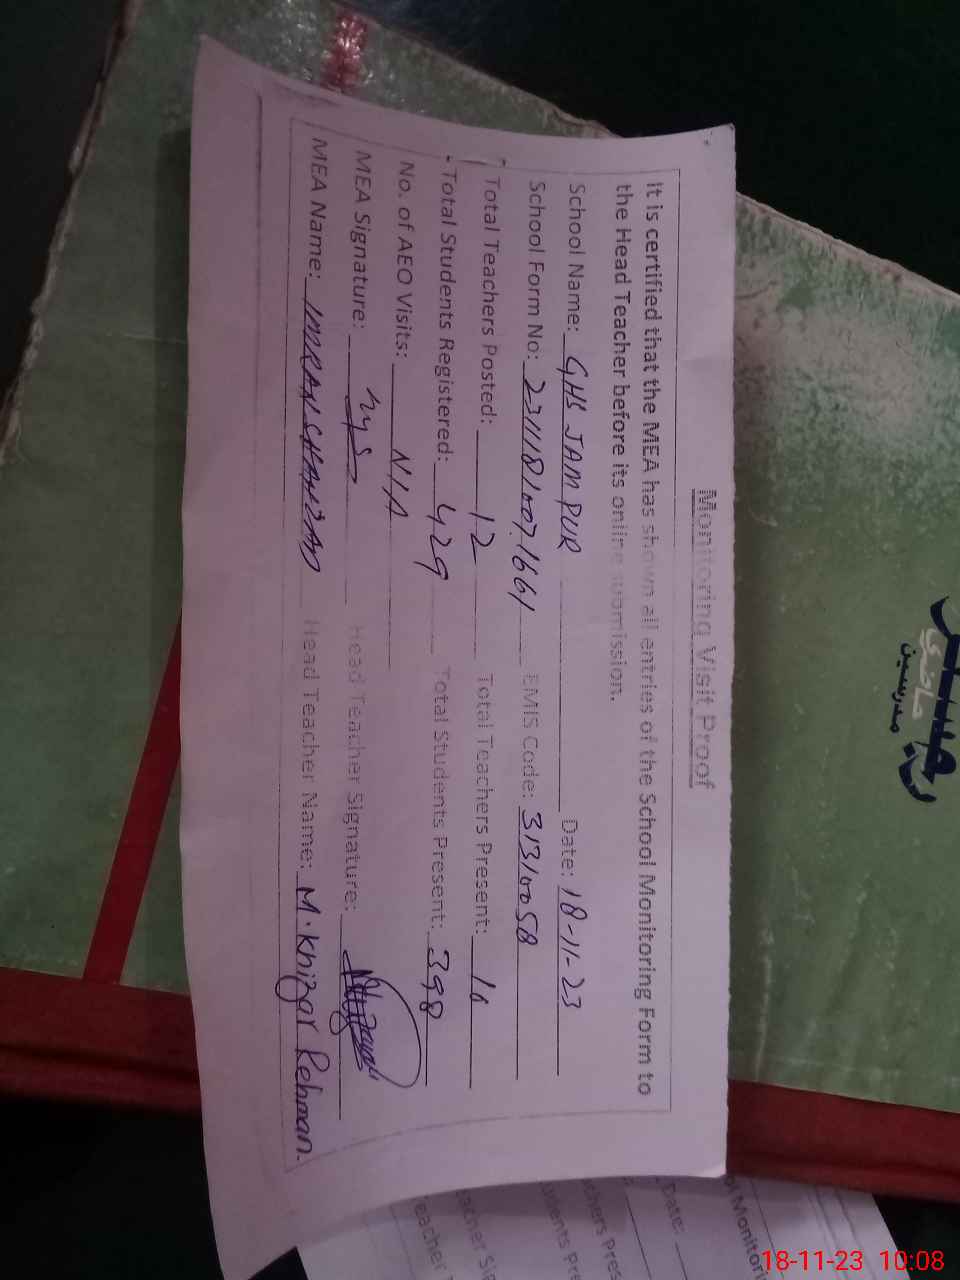 Monitoring Visit Proof
It is certified that the MEA has shown all entries of the School Monitoring Form to
the Head Teacher before its online submission.
School Name: GHS JAM PUR Date: 18-11-23
School Form No: 23111810071661 EMIS Code: 31310058
Total Teachers Posted: 12 Total Teachers Present: 10
Total Students Registered: 429 Total Students Present: 398
No. of AEO Visits: N/A
MEA Signature: Head Teacher Signature:
MEA Name: IMRAN SHAHZAD Head Teacher Name: M. Khizar Rehman.
رجسٹر
حاضری
مدرسین
Monitori
Date:
chers Pres
udents Pre
eacher Si
eacher
18-11-23 10:08